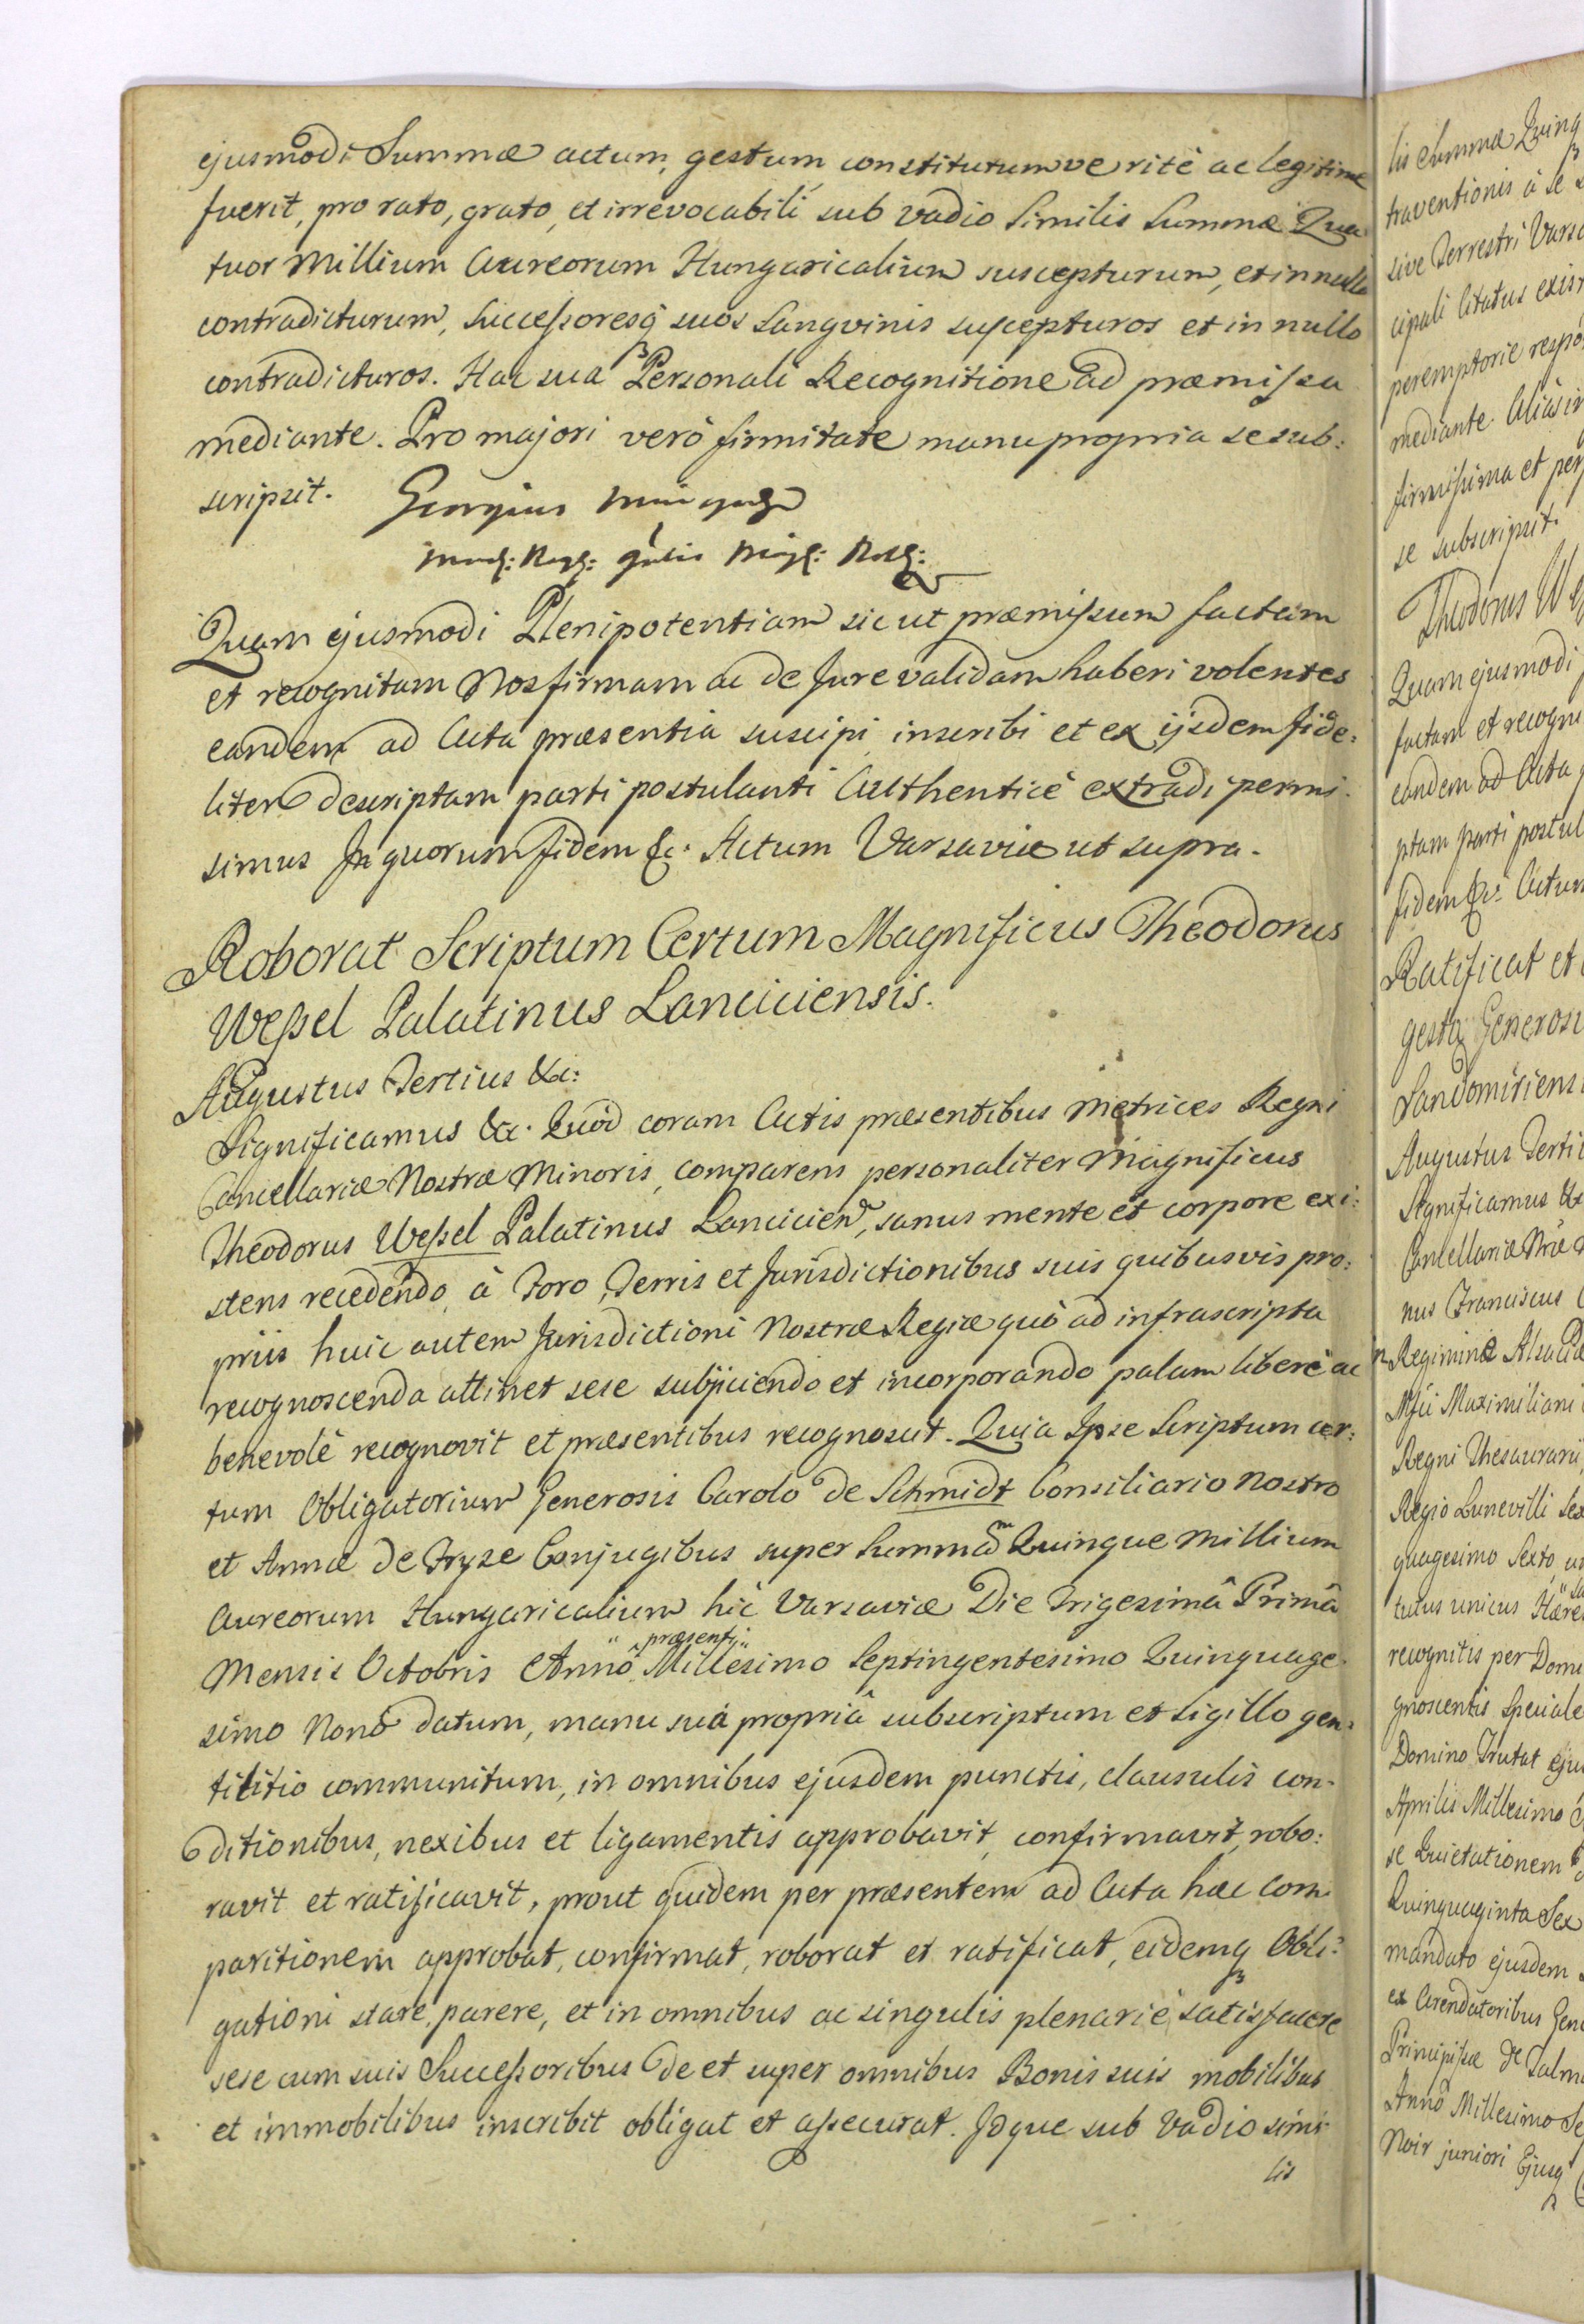 ejusmodi Summæ actum, gestum constitutumve ritè ac legitime
fuerit, pro rato, grato, et irrevocabili sub vadio similis Summæ Qua
tuor Millium Aureorum Hungaricalium suscepturum, et in nullo
contradicturum, Successoresq suos Sangvinis suscepturos et in nullo
contradicturos. Hac sua Personali Recognitione ad præmissa
mediante. Pro majori verò firmitate manu propria se sub:
scripsit. Georgius
Quam ejusmodi Plenipotentiam sic ut præmissum factam
et recognitam Nos firmam ac de Jure validam haberi volentes
eandem ad Acta præsentia suscipi inscribi et ex ijsdem fide:
liter descriptam parti postulanti Authenticè extradi permi.
simus In quorum fidem &c. Actum Varsaviæ ut supra.
Roborat Scriptum Certum Magnificus Theodorus
Wessel Palatinus Lanciciensis.
Augustus Tertius &c:
Significamus &c. Quòd coram Actis præsentibus Metrices Regni
Cancellariæ Nostræ Minoris, comparens personaliter Magnificus
Theodorus Wessel Palatinus Lancicien, sanus mente et corpore exi:
stens recedendo à Foro, Terris et Jurisdictionibus suis quibusvis pro:
priis huic autem Jurisdictioni Nostræ Regiæ quò ad infrascripta
recognoscenda attinet sese subjiciendo et incorporando palam liberè ac
benevolè recognovit et præsentibus recognoscit. Quia Ipse Scriptum cer:
tum Obligatorium Generosis Carolo de Schmidt Consiliario Nostro
et Annæ de Fryze Conjugibus super Summam Quinque Millium
Aureorum Hungaricalium hic Varsaviæ Die Trigesimâ Primâ
Mensis Octobris Annô præsenti Millesimo Septingentesimo Quinquage
simo Nonô datum, manu suâ propriâ subscriptum et sigillo gen:
tilitio communitum, in omnibus ejusdem punctis, clausulis con-
ditionibus, nexibus et ligamentis approbavit, confirmavit, robo:
ravit et ratificavit, prout quidem per præsentem ad Acta hæc Com
paritionem approbat, confirmat, roborat et ratificat, eidemq Obli:
gationi stare, parere, et in omnibus ac singulis plenariè satisfacere
sese cum suis Successoribus de et super omnibus Bonis suis mobilibus
et immobilibus inscribit obligat et assecurat. Idque sub Vadio simi
lis
lis Summæ Quinq
traventionis à se
sive Terrestri Varsa
cipali citatus exist
peremptoriè respo
mediante. Aliàs in
firmissima et per
se subscripsit.
Theodorus We
Quam ejusmodi
factam et recogni
eandem ad Acta
ptam parti postul
fidem &c. Actum
Ratificat et
gesta Generosi
Sandomiriensi
Augustus Terti
Significamus &c
Cancellariæ Nræ
nus Franciscus
Regiminis
Maximiliani
Regni Thesaurarii
Regio Lunevilli
quagesimo Sexto
tutus unicus Hære
recognitis per Domi
gnoscentis Speciale
Domino Trutat eju
Aprilis Millesimo
se Quietationem
Quinquaginta Sex
mandato ejusdem
ex Arendatoribus Gene
Principissæ de
Annô Millesimo Se
Noir juniori Ejusq